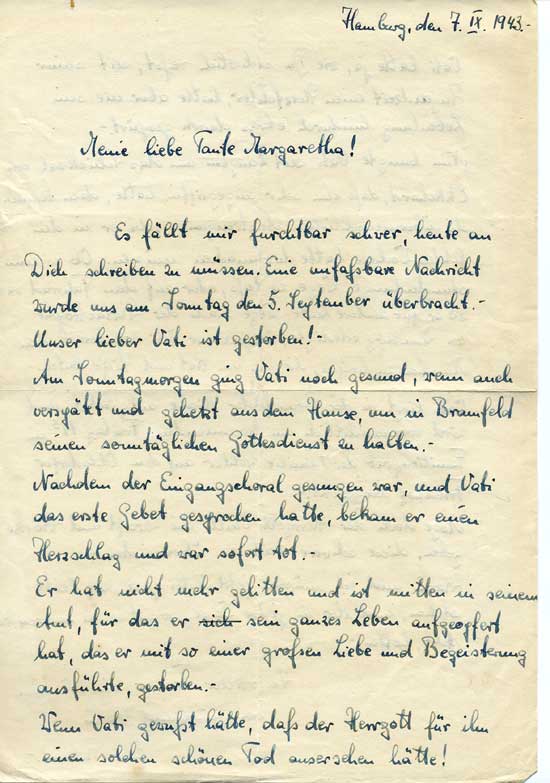 Hamburg, den 7. IX. 1943.-
Meine liebe Tante Margaretha!
Es fällt mir furchtbar schwer, heute an
Dich schreiben zu müssen. Eine unfaßbare Nachricht
wurde uns am Sonntag den 5. September überbracht.-
Unser lieber Vati ist gestorben!-
Am Sonntagmorgen ging Vati noch gesund, wenn auch
verspätet und gehetzt aus dem Hause, um in Bramfeld
seinen sonntäglichen Gottesdienst zu halten.-
Nachdem der Eingangschoral gesungen war, und Vati
das erste Gebet gesprochen hatte, bekam er einen
Herzschlag und war sofort tot.-
Er hat nicht mehr gelitten und ist mitten in seinem
Amt, für das er sich sein ganzes Leben aufgeopfert
hat, das er mit so einer großen Liebe und Begeisterung
ausführte, gestorben.-
Wenn Vati gewußt hätte, daß der Herrgott für ihn
einen solchen schönen Tod ausersehen hätte!